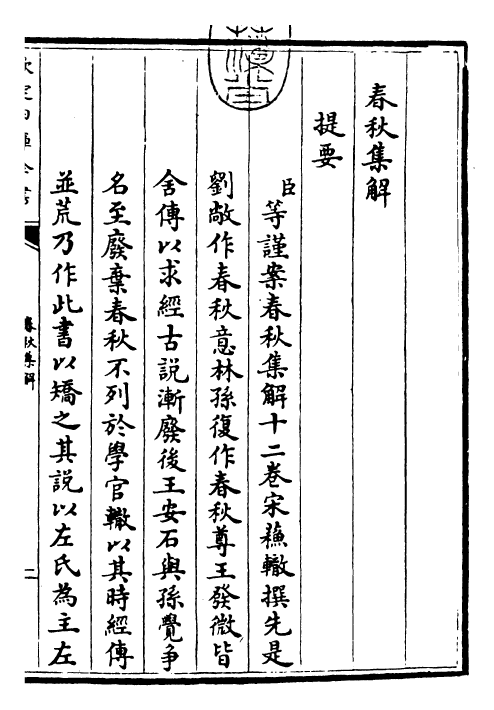 春秋集解
提要
臣等謹案春秋集解十二巻宋蘓轍撰先是
劉敞作春秋意林孫復作春秋尊王發微皆
舍傳以求經古説漸廢後王安石與孫覺争
名至廢棄春秋不列於學官轍以其時經傳
並荒乃作此書以矯之其説以左氏為主左
欽定四庫全書
春秋集解
二